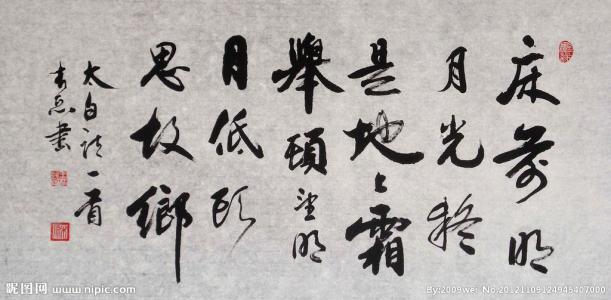 床前明
月光疑
是地上霜
舉頭望明
月低頭
思故鄉
太白詩一首
書
昵图网 www.nipic.com
By:2009wei No.20121109124945407000